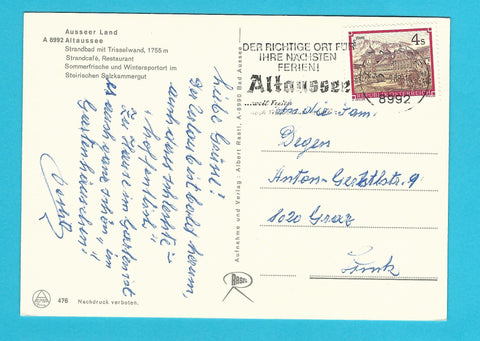 Ausseer Land
A 8992 Altaussee
Strandbad mit Trisselwand, 1755 m
Strandcafé, Restaurant
Sommerfrische und Wintersportort im
Steirischen Salzkammergut
DER RICHTIGE ORT FÜR
IHRE NÄCHSTEN
FERIEN!
Altaussee
8992
4 S
REPUBLIK ÖSTERREICH
Liebe Grüße!
Der Urlaub ist bald herum,
auch das schlechte
"hoffentlich"
Zu Hause im Gartenort
ist auch ganz schön, im
Gartenhäuschen!
An die Fam.
Degen
8020 Graz
Aufnahme und Verlag: Albert Rastl, A-8990 Bad Aussee
Rastl
476 Nachdruck verboten.